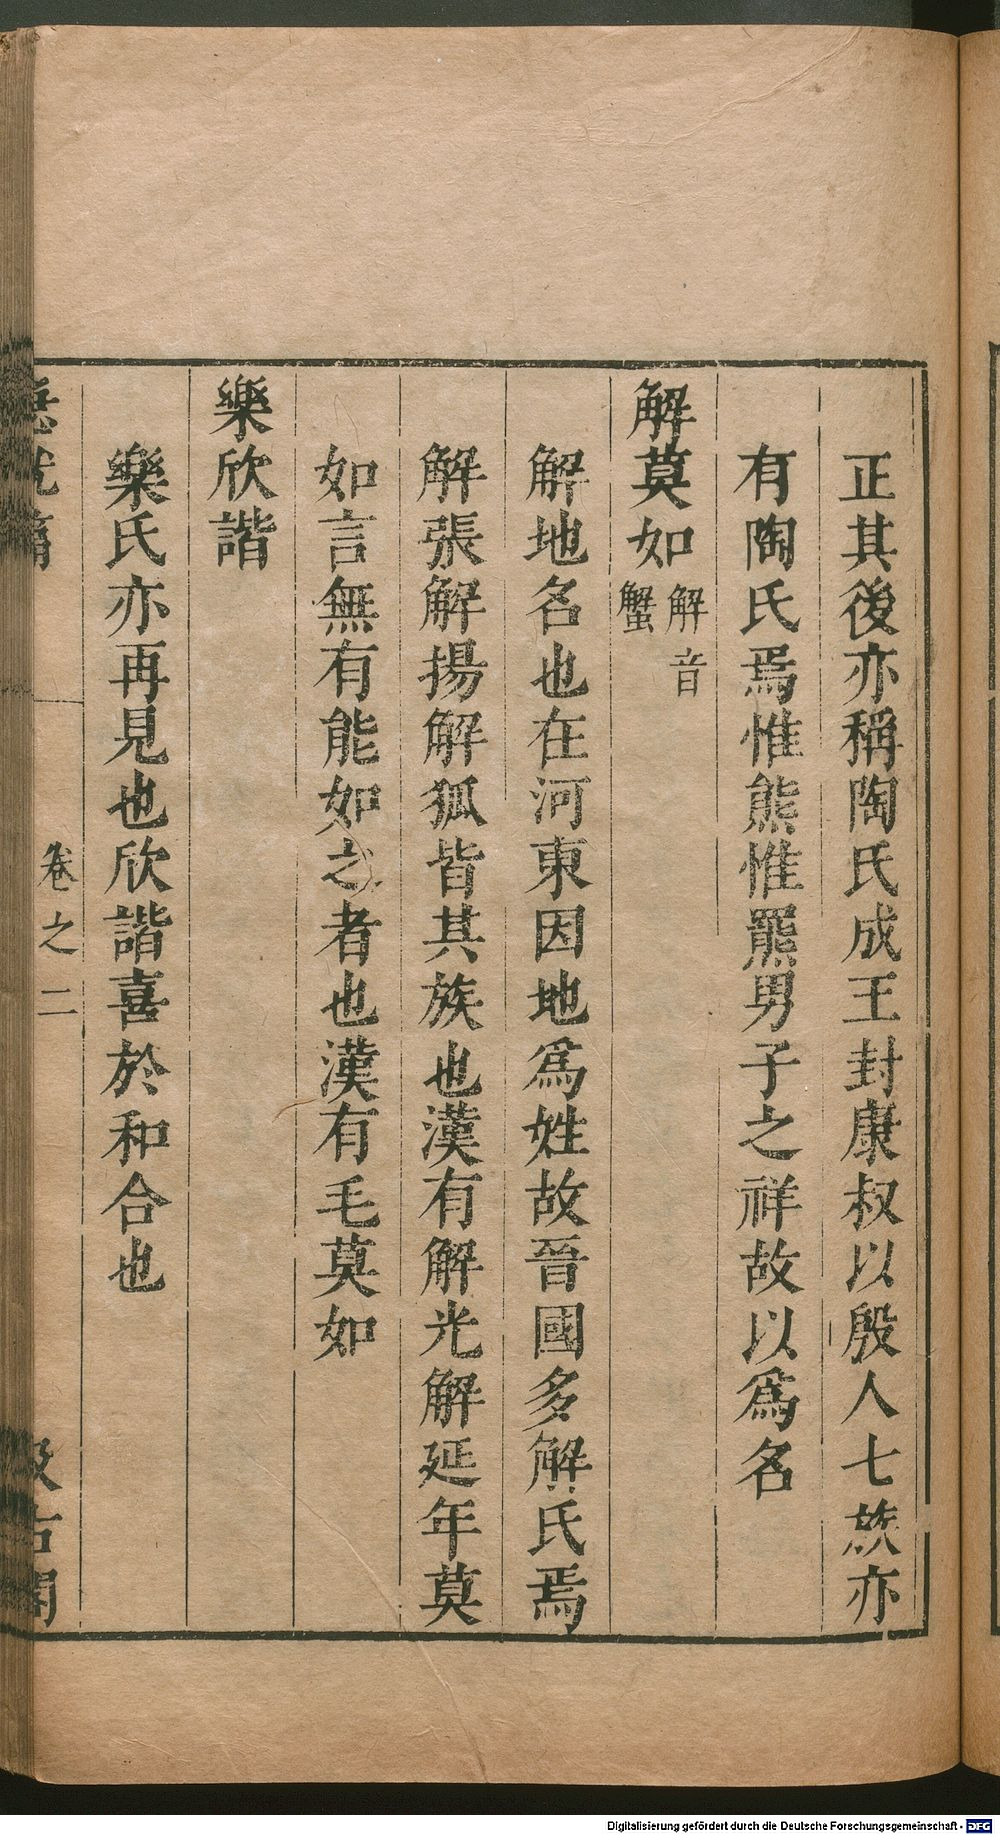 正其後亦稱陶氏成王封康叔以殷人七族亦
有陶氏焉惟熊惟羆男子之祥故以爲名
解莫如解音蟹
解地名也在河東因地爲姓故晉國多解氏焉
解張解揚解狐皆其族也漢有解光解延年莫
如言無有能如之者也漢有毛莫如
樂欣諧
樂氏亦再見也欣諧喜於和合也
急就篇 卷之二 汲古閣
Digitalisierung gefördert durch die Deutsche Forschungsgemeinschaft - DFG